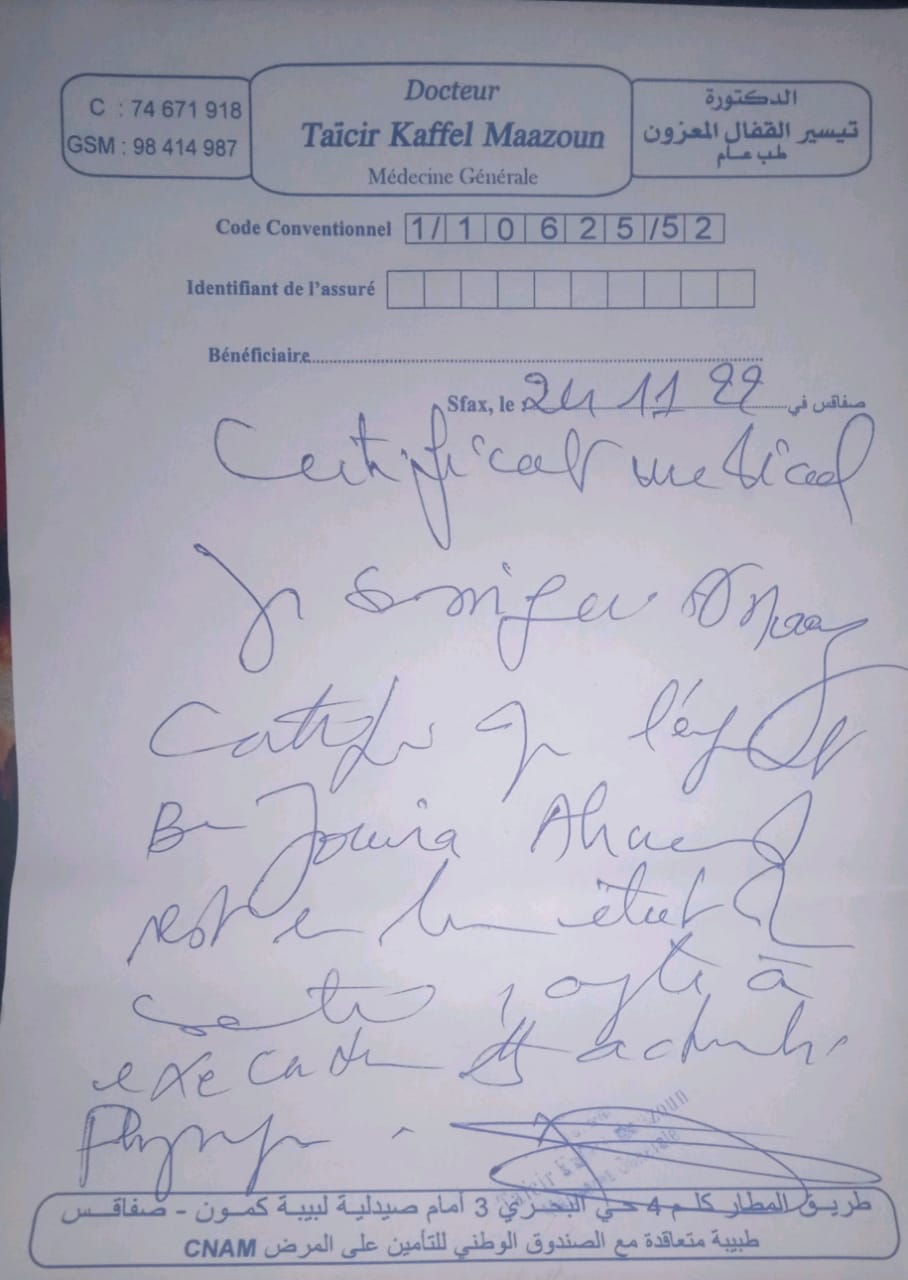 C : 74 671 918
GSM : 98 414 987
Docteur
Taïcir Kaffel Maazoun
Médecine Générale
الدكتورة
تيسير القفال المعزون
طب عام
Code Conventionnel 1/10625/52
Identifiant de l'assuré
Bénéficiaire
Sfax, le : 24 11 22 صفاقس في
Certificat medical
Je soussigné
Certifie que
Ben Jouira Ahmed
est en bon état de
sante, apte à
executer des activités
Physique.
Taicir
طريق المطار كلم 4 حي البحري 3 أمام صيدلية لبيبة كمون - صفاقس
طبيبة متعاقدة مع الصندوق الوطني للتأمين على المرض CNAM